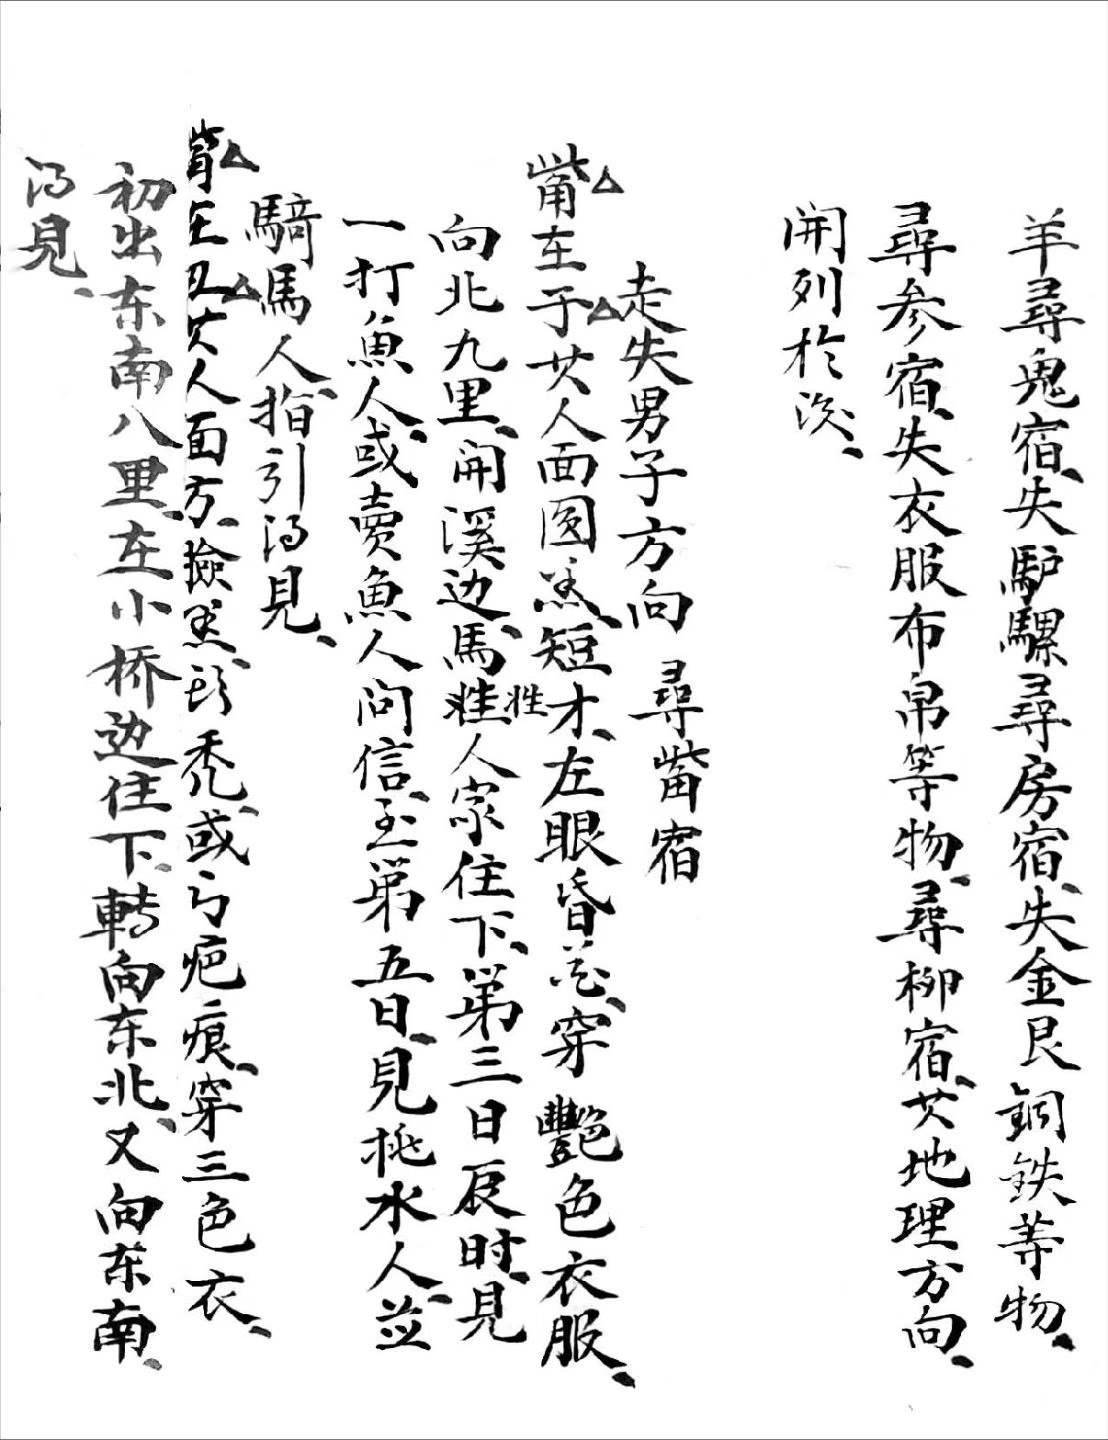 羊尋鬼宿、失馿騾尋房宿、失金艮銅鉄等物、
尋参宿、失衣服布帛等物、尋柳宿、其地理方向、
開列於次、
走失男子方向 尋觜宿
觜在子其人面圆黑短才、左眼昏花、穿艷色衣服、
向北九里、開溪边、馬牲人家住下、第三日辰时、見
牲
一打魚人、或賣魚人问信、至第五日、見桃水人、並
騎馬人、指引得見、
觜在丑其人面方、臉黑、頭禿、或有疤痕、穿三色衣、
初出东南八里、在小桥边住下、轉向东北、又向东南、
得見、